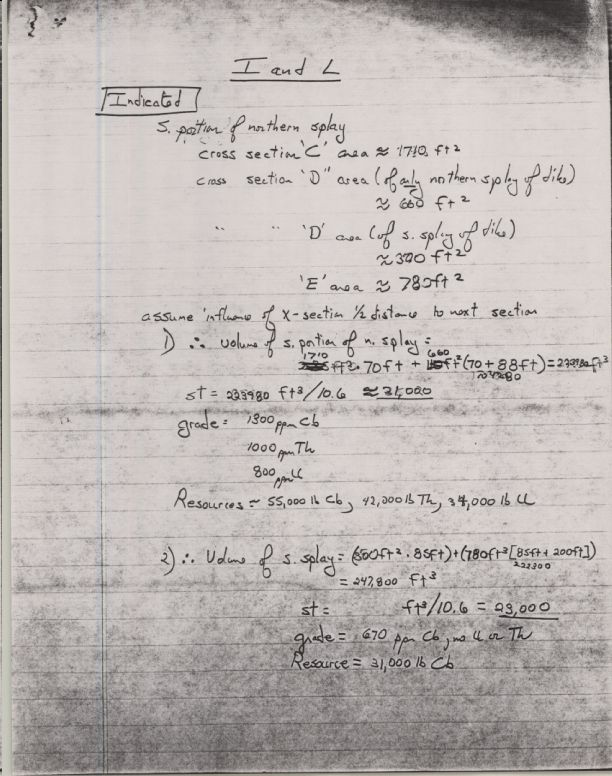 I and L
Indicated
S. portion of northern splay
cross section 'C' area ≈ 1710 ft²
cross section 'D' area (of only northern splay of dike)
≈ 660 ft²
" " 'D' area (of s. splay of dike)
≈ 300 ft²
'E' area ≈ 780 ft²
assume influence of X-section 1/2 distance to next section
1) ∴ volume of s. portion of n. splay =
1710 ft². 70ft + 660 ft² (70 + 88ft) = ft³
104280
st = 223980 ft³/10.6 ≈ 21,000
grade = 1300 ppm Cb
1000 ppm Th
800 ppm U
Resources ≈ 55,000 lb Cb, 42,000 lb Th, 34,000 lb U
2) ∴ Volume of s. splay = (300ft² . 85ft) + (780ft² [85ft + 200ft])
222300
= 247,800 ft³
st = ft³/10.6 = 23,000
grade = 670 ppm Cb, no U or Th
Resource = 31,000 lb Cb